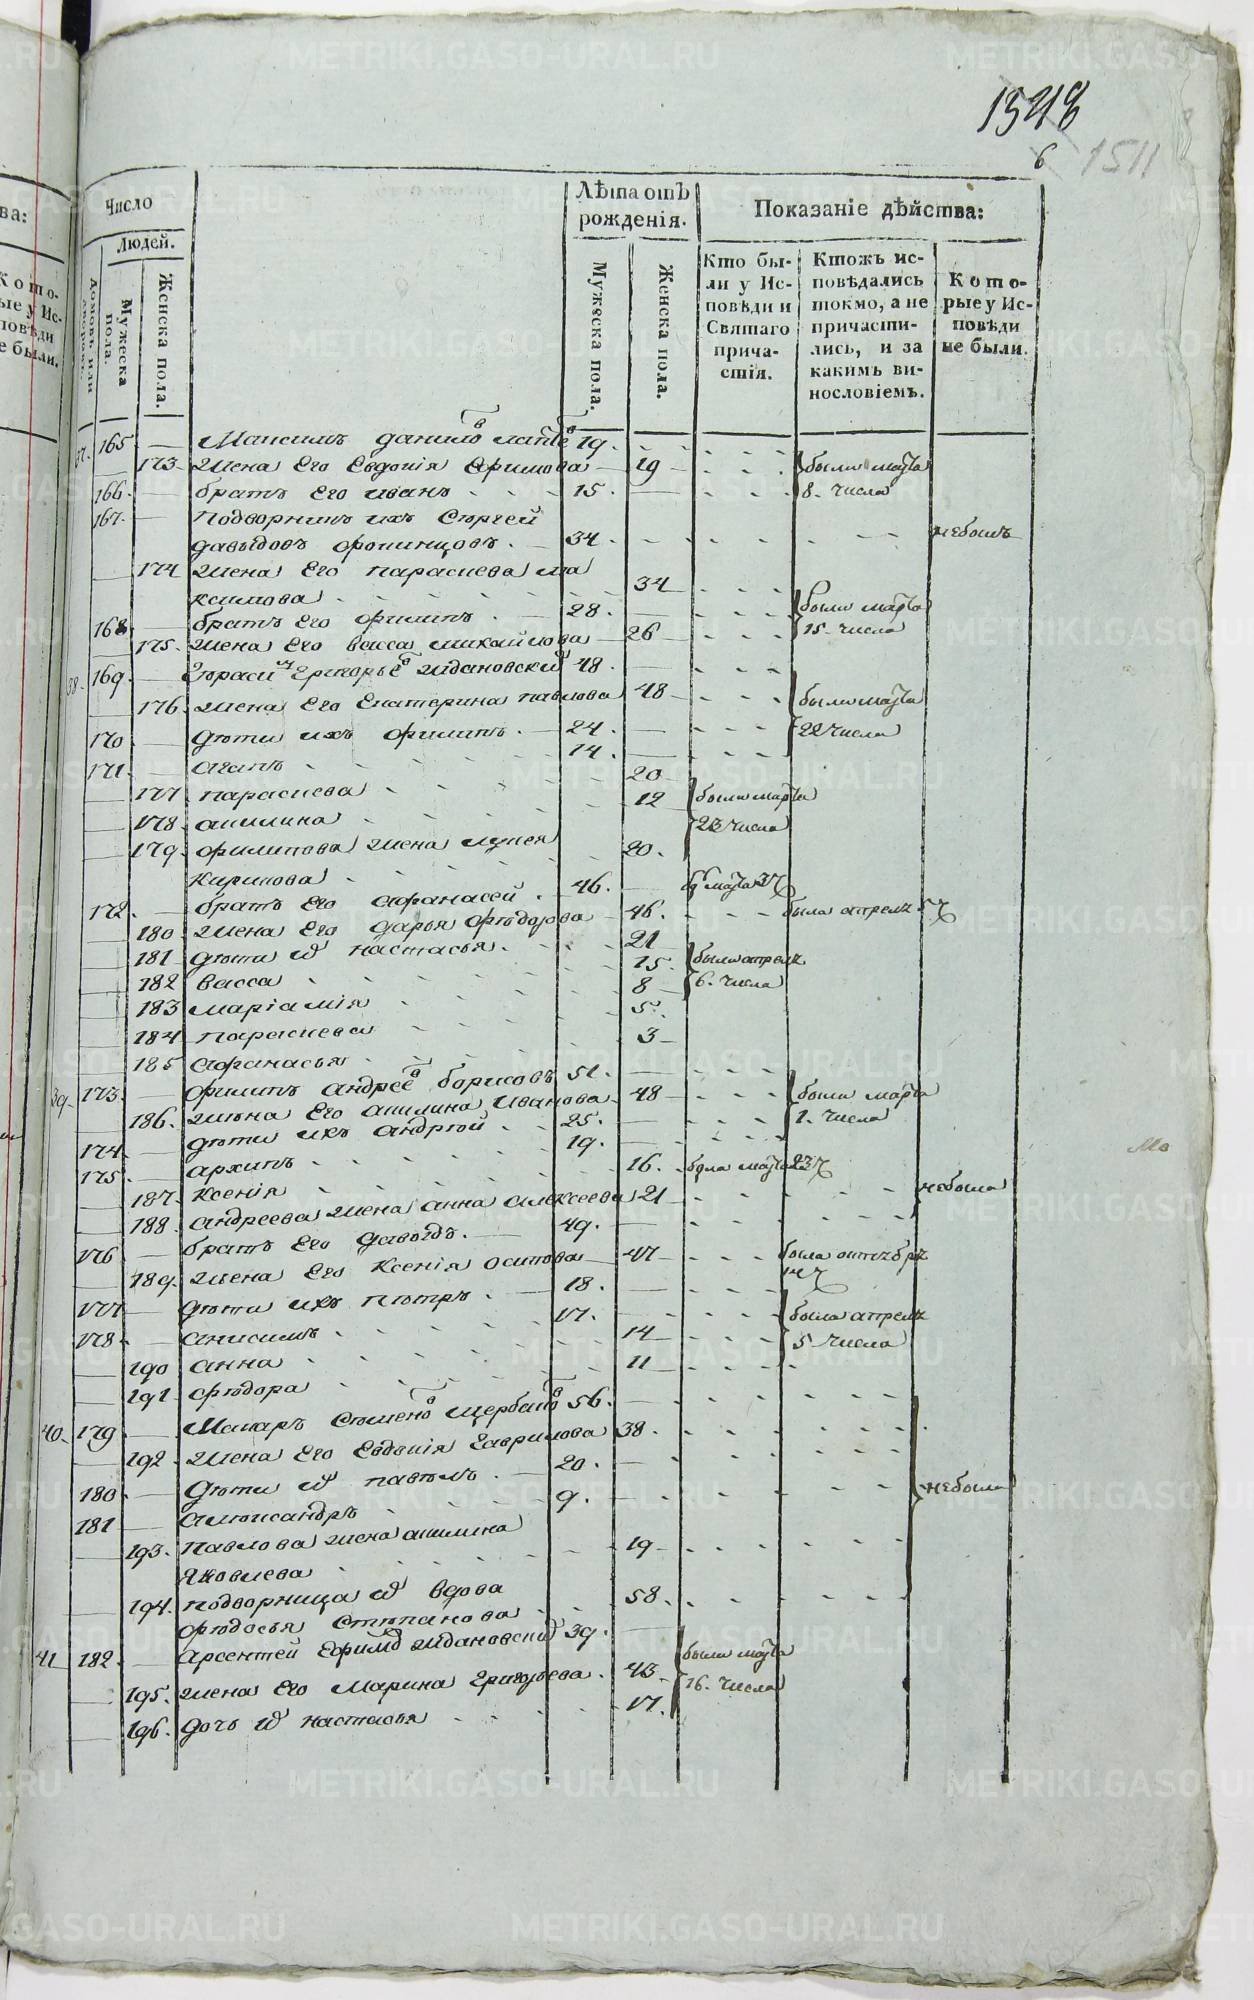 1548
6 1511
Число
Людей.
Домовъ или дворовъ.
Мужеска пола.
Женска пола.
Лѣта отъ рожденія.
Мужеска пола.
Женска пола.
Показаніе дѣйства:
Кто бы-
ли у Ис-
повѣди и
Святаго
прича-
стія.
Ктожъ ис-
повѣдались
токмо, а не
причасти-
лись, и за
какимъ ви-
нословіемъ.
Кото-
рые у Ис-
повѣди
не были.
37. 165. Максимъ данило лапте 19.
173 жена Его Евдокія Ефимова 19 были марта
166. братъ Его иванъ 15. 8. числа
167. подворникъ ихъ Сергей
давыдовъ 34. небылъ
174 жена Его параскева ма
ксимова 34
168. братъ Его филипъ 28. были марта
175. жена Его васса михайлова 26 15. числа
38. 169. Герасим Григорьев ждановский 48.
176. жена Его Екатерина павлова 48 были марта
170 дети ихъ филипъ 24. 22 числа
171 агапъ 14.
177 параскева 20 были марта
178 акилина 12 23 числа
179. филипова жена
Кирикова 20.
172. братъ Его афанасей 46.
180. жена Его дарья федорова 46. была апреля 5 ч
181 дети их настасья 21 были апреля
182 васса 15. 6. числа
183 маріамія 8
184 параскева 5.
185 афанасья 3
39. 173. филипъ андреев борисовъ 51.
186. жена Его акилина Иванова 48 были марта
174 дети ихъ андрей 25. 1. числа
175. архипъ 19.
187. Ксенія 16. была марта 23 ч
188. андреева жена анна алексеева 21 небыла
176 братъ Его давыдъ. 49.
189. жена Его Ксенія осипова 47 была октебря
177 дети ихъ петръ 18.
178. анисимъ 17. была апреля
190 анна 14 5 числа
191 федора 11
40. 179 Макаръ Семено щербако 56.
192. жена Его Евдокія Гаврилова 38.
180 дети их павелъ 20. небыли
181 александръ 9.
193. павлова жена акилина
Яковлева 19
194. подворница их вдова
федосья Степанова 58.
41 182. Арсентей Ефимо ждановский 39. были марта
195. жена Его Марина Григорьева 43. 16. числа
196. дочь их настасья 17.
METRIKI.GASO-URAL.RU